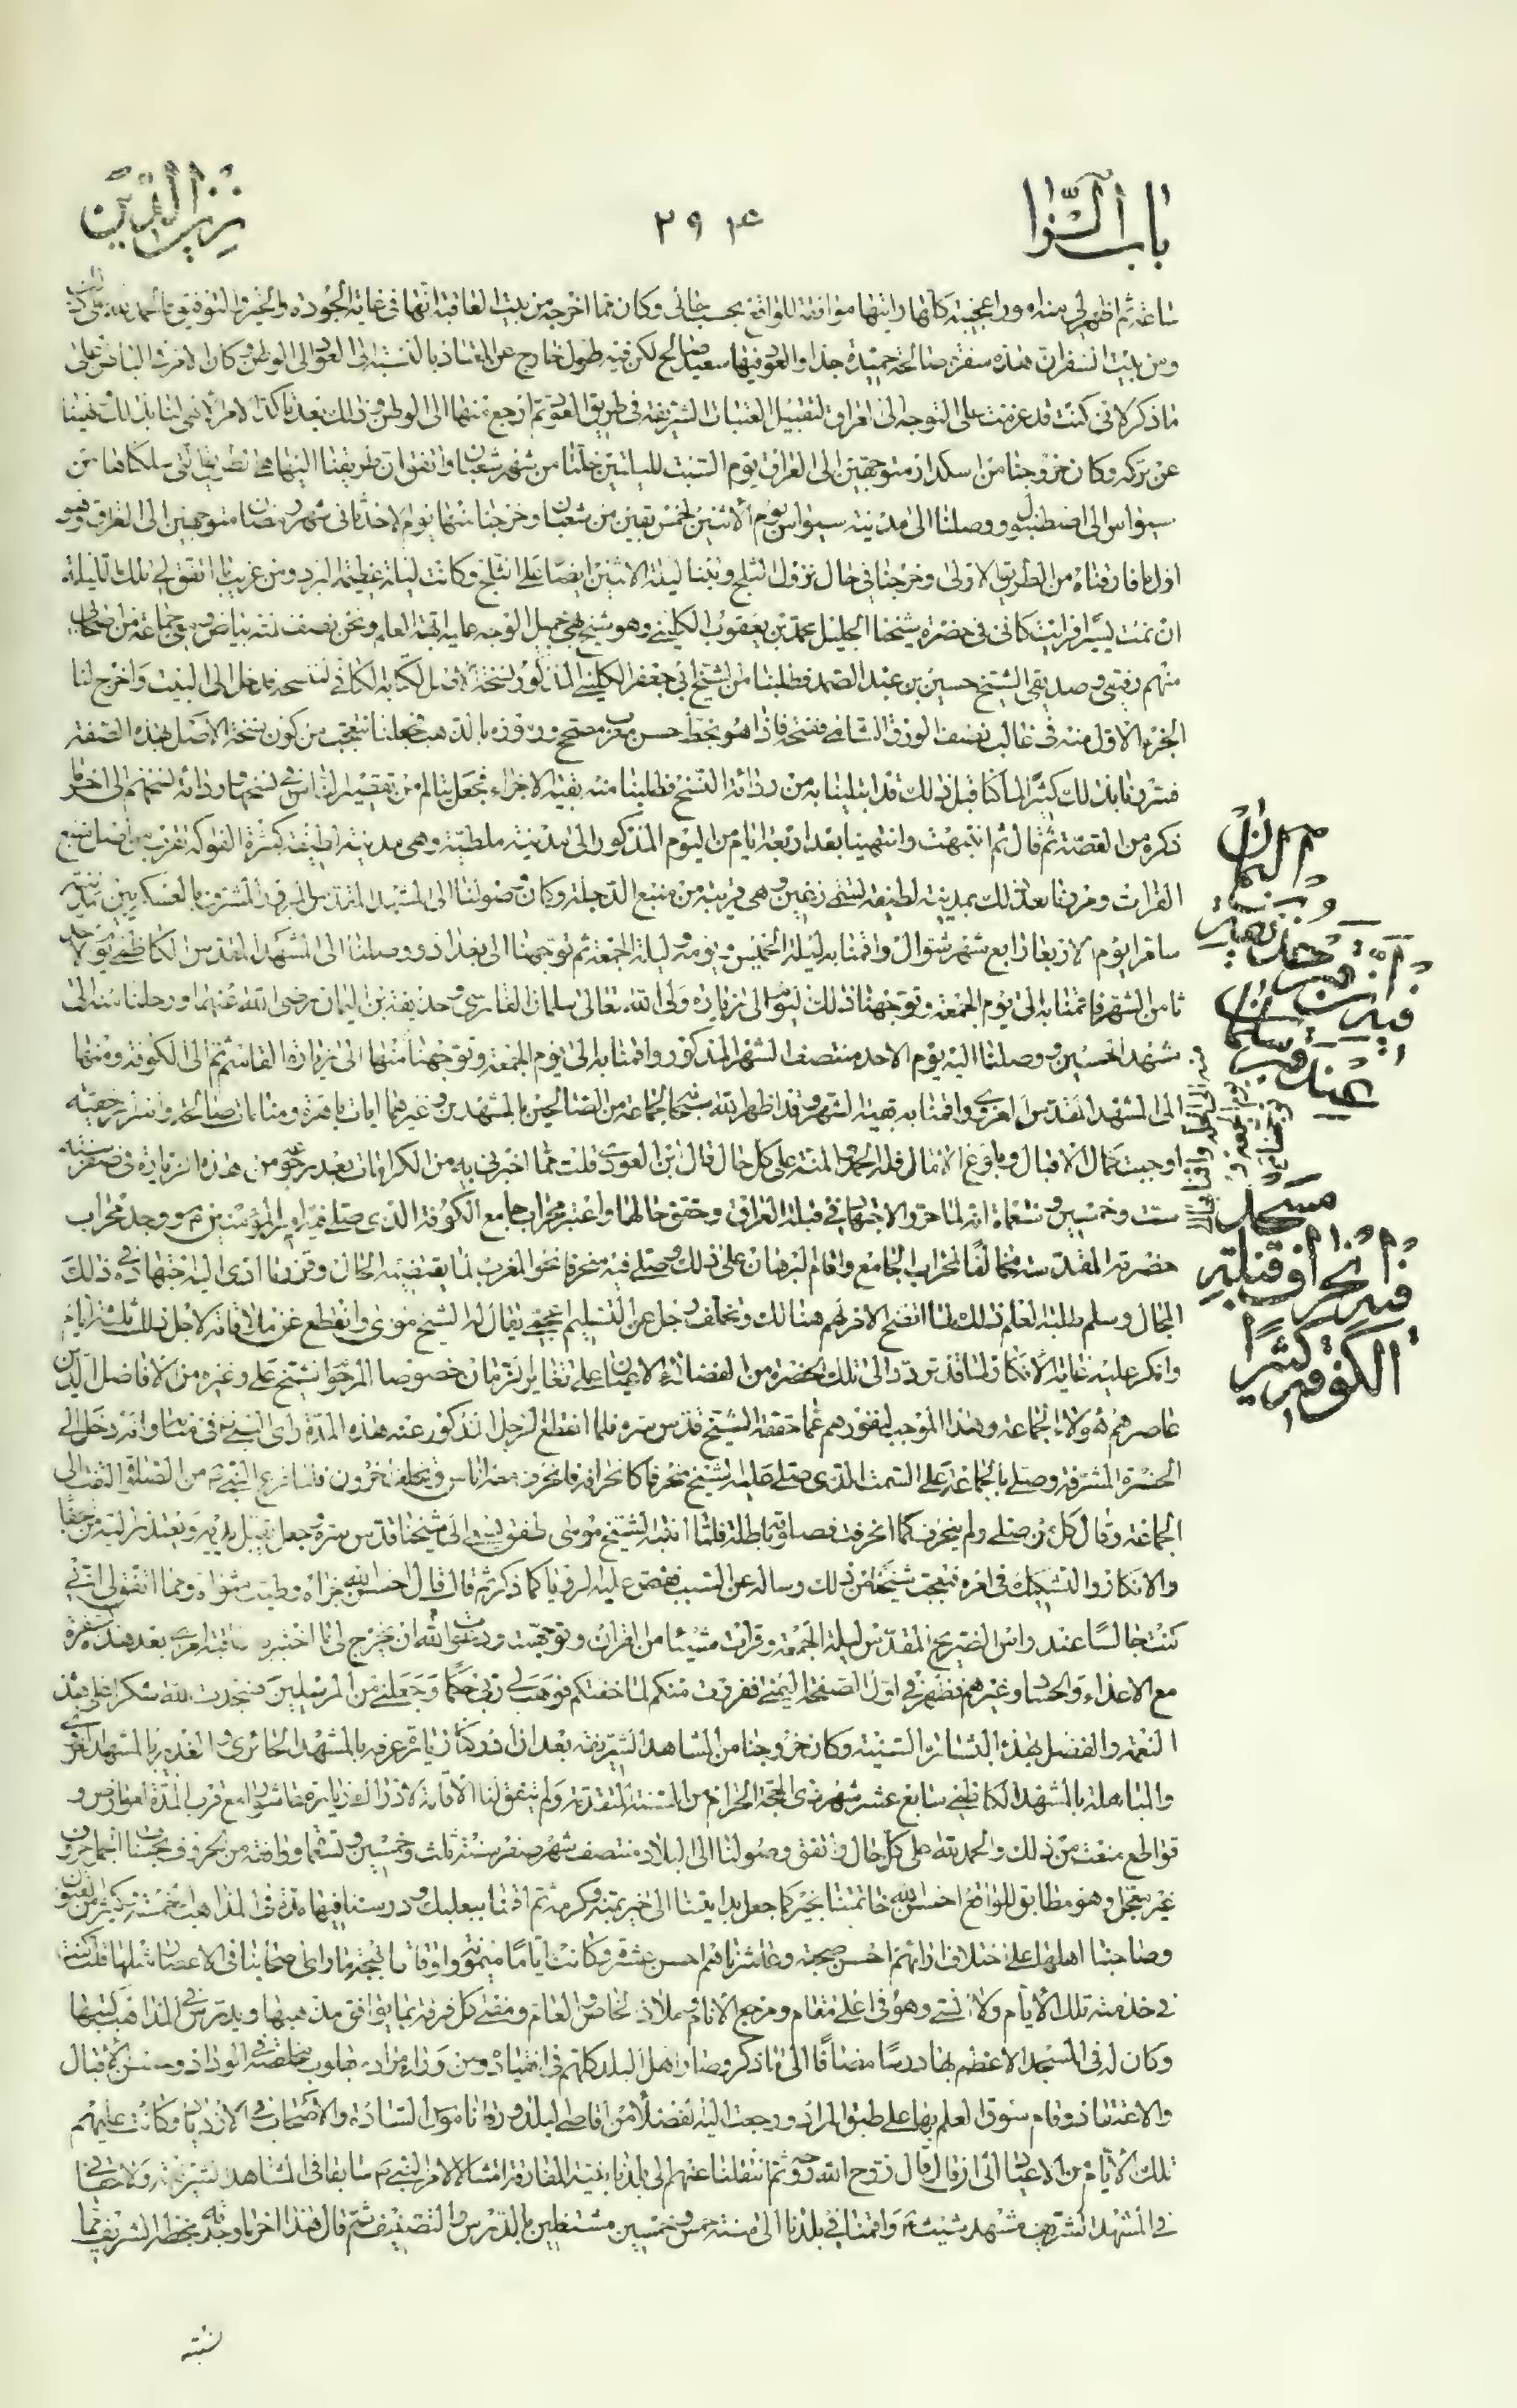 باب الزا
۲۹۴
زين الدين
ساعة ثم اظهر لي منه امورا عجيبة كانها رايتها موافقة للواقع بحسب حالي وكان مما اخرجه من بيت العاقبة انها في غاية الجودة والخير والتوفيق فالحمد لله على ذلك
ومن بيت السفر ان هذه سفرة صالحة حميدة جدا والعود فيها سعيد صالح لكن فيه طول خارج عن المعتاد بالنسبة الى العود الى الوطن وكان الامر في الباطن على
ما ذكر لاني كنت قد عزمت على التوجه الى العراق لتقبيل العتبات الشريفة في طريق العود ثم ارجع منها الى الوطن وذلك بعد تاكد الامر الالهي لنا بذلك ونهينا
عن تركه وكان خروجنا من اسكدار متوجهين الى العراق يوم السبت لليلتين خلتا من شهر شعبان واتفق ان طريقنا اليها هي الطريق التي سلكناها من
سيواس الى اصطنبول ووصلنا الى مدينة سيواس يوم الاثنين لخمس بقين من شعبان وخرجنا منها يوم الاحد ثاني شهر رمضان متوجهين الى العراق وهو
اول ما فارقناه من الطريق الاولى وخرجنا في حال نزول الثلج وبتنا ليلة الاثنين ايضا على الثلج وكانت ليلة عظيمة البرد ومن غريب ما اتفق لي تلك الليلة
ان نمت يسيرا فرايت كاني في حضرة شيخنا الجليل محمد بن يعقوب الكليني وهو شيخ بهي جميل الوجه عليه ابهة العلم ونحن نصف لمته بياض ومعي جماعة من اصحابي
منهم رفيقي وصديقي الشيخ حسين بن عبد الصمد فطلبنا من الشيخ ابي جعفر الكليني المذكور نسخة الاصل لكتابه الكافي لننسخه فدخل الى البيت واخرج لنا
الجزء الاول منه في قالب نصف الورق الشامي ففتحه فاذا هو بخط حسن معرب مصحح ورموزه بالذهب فجعلنا نتعجب من كون نسخة الاصل بهذه الصفة
فسررنا بذلك كثيرا لما كنا قبل ذلك قد ابتلينا به من رداءة النسخ فطلبنا منه بقية الاجزاء فجعل يتالم من تقصير الناس في نسخها ورداءة نسخهم الى اخر ما
ذكره من القصة ثم قال ثم انتبهت وانتهينا بعد اربعة ايام من اليوم المذكور الى مدينة ملطية وهي مدينة لطيفة كثيرة الفواكه تقرب من اصل منبع
الفرات ومررنا بعد ذلك بمدينة لطيفة تسمى زغين وهي قريبة من منبع الدجلة وكان وصولنا الى المشهد المقدس المبرور المشرف بالعسكريين بمدينة
سامرا يوم الاربعا رابع شهر شوال واقمنا به ليلة الخميس ويومه وليلة الجمعة ثم توجهنا الى بغداد ووصلنا الى المشهد المقدس الكاظمي يوم الاحد
ثامن الشهر فاقمنا به الى يوم الجمعة وتوجهنا ذلك اليوم الى زيارة ولى الله تعالى سلمان الفارسي وحذيفة بن اليمان رضي الله عنهما ورحلنا منه الى
مشهد الحسين ووصلنا اليه يوم الاحد منتصف الشهر المذكور واقمنا به الى يوم الجمعة وتوجهنا منها الى زيارة القاسم ثم الى الكوفة ومنها
الى المشهد المقدس الغروي واقمنا به بقية الشهر وقد اظهر الله سبحانه لجماعة من الصالحين بالمشهدين وغيرهما ايات باهرة ومنامات صالحة واسرار خفية
اوجبت كمال الاقبال وبلوغ الامال فله الحمد والمنة على كل حال قال ابن العودي قلت مما اخبرني به من الكرامات بعد رجوعه من هذه الزيارة في صفر سنة
ست وخمسين وتسعمائة انه لما حرر الاجتهاد في قبلة العراق وحقق حالها واعتبر محراب جامع الكوفة الذي صلى فيه امير المؤمنين ع ووجد محراب
حضرته المقدسة مخالفا لمحراب الجامع واقام البرهان على ذلك وصلى فيه منحرفا نحو المغرب لما يقتضيه الحال وقرر ما ادى اليه اجتهاده في ذلك
المجال وسلم طلبة العلم ذلك لما اتضح الامر لهم هنالك وتخلف رجل عن التسليم اعجمي يقال له الشيخ موسى وانقطع عن ملاقاته لاجل ذلك ثلثة ايام
وانكر عليه غاية الانكار لما قد تردد الى تلك الحضرة من الفضلاء الاعيان على تغاير الازمان خصوصا المرحوم الشيخ علي وغيره من الافاضل الذين
عاصرهم هؤلاء الجماعة وهذا الموجب لنفورهم عما حققه الشيخ قدس سره فلما انقطع الرجل المذكور عنه هذه المدة راى النبي ص في منامه وانه دخل الى
الحضرة المشرفة وصلى بالجماعة على السمت الذي صلى عليه الشيخ منحرفا كانحرافه فانحرف معه اناس وتخلف اخرون فلما فرغ النبي ص من الصلوة التفت الى
الجماعة وقال كل من صلى ولم ينحرف كما انحرفت فصلوته باطلة فلما انتبه الشيخ موسى طفق يسعى الى شيخنا قدس سره وجعل يقبل يديه ويعتذر اليه من الجفا
والانكار والتشكيك في امره فتعجب شيخنا من ذلك وساله عن السبب فقص عليه الرؤيا كما ذكر ثم قال قال احسن الله جزاه وطيب مثواه ومما اتفق لي اني
كنت جالسا عند راس الضريح المقدس ليلة الجمعة وقرات شيئا من القران وتوجهت ودعوت الله ان يخرج لي ما اختبر به عاقبة امري بعد هذه السفرة
مع الاعداء والحساد وغيرهم فظهر في اول الصفحة اليمنى ففررت منكم لما خفتكم فوهب لي ربي حكما وجعلني من المرسلين فسجدت لله شكرا على هذه
النعمة والفضل بهذه البشائر السنية وكان خروجنا من المشاهد الشريفة بعد ان ادركنا زيارة عرفة بالمشهد الحائري والغدير بالمشهد الغروي
والمباهلة بالمشهد الكاظمي سابع عشر شهر ذي الحجة الحرام من السنة المتقدمة ولم يتفق لنا الاقامة لادراك زيارة عاشورا مع قرب المدة لعوارض و
قواطع منعت من ذلك والحمد لله على كل حال واتفق وصولنا الى البلاد منتصف شهر صفر سنة ثلث وخمسين وتسعمائة
غير معجل وهو مطابق للواقع احسن الله خاتمتنا بخير كما جعل بدايتنا الى خير بمنه وكرمه ثم اقمنا ببعلبك ودرسنا فيها مدة في المذاهب الخمسة وكثير من الفنون
وصاحبنا اهلها على اختلاف ارائهم احسن صحبة وعاشرناهم احسن عشرة وكانت اياما ميمونة واوقاتا بهجة ما راى اصحابنا في الاعصار مثلها قلت كنت
في خدمته تلك الايام ولا انسى وهو في اعلى مقام ومرجع الانام وملاذ الخاص والعام ومفتي كل فرقة بما يوافق مذهبها ويدرس في المذاهب كتبها
وكان له في المسجد الاعظم بها درسا مضافا الى ما ذكر وصار اهل البلد كلهم في انقياده ومن وراء مراده بقلوب مخلصة في الوداد وحسن الاقبال
والاعتقاد وقام سوق العلم بها على طبق المراد ورجعت اليه الفضلاء من اقاصي البلاد ورقا ناموس السادة والاصحاب في الازدياد وكانت عليهم
تلك الايام من الاعياد الى ان قال قال روح الله روحه ثم انتقلنا عنهم الى بلدنا بنية المفارقة امتثالا لامر الشيخ سابقا في المشاهد الشريفة ولاحقا
في المشهد الشريف مشهد شيث ع واقمنا في بلدنا الى سنة خمس وخمسين مشتغلين بالدرس والتصنيف ثم قال هذا اخر ما وجدته بخطه الشريف مما
مسجد
الكوفة كثيرا